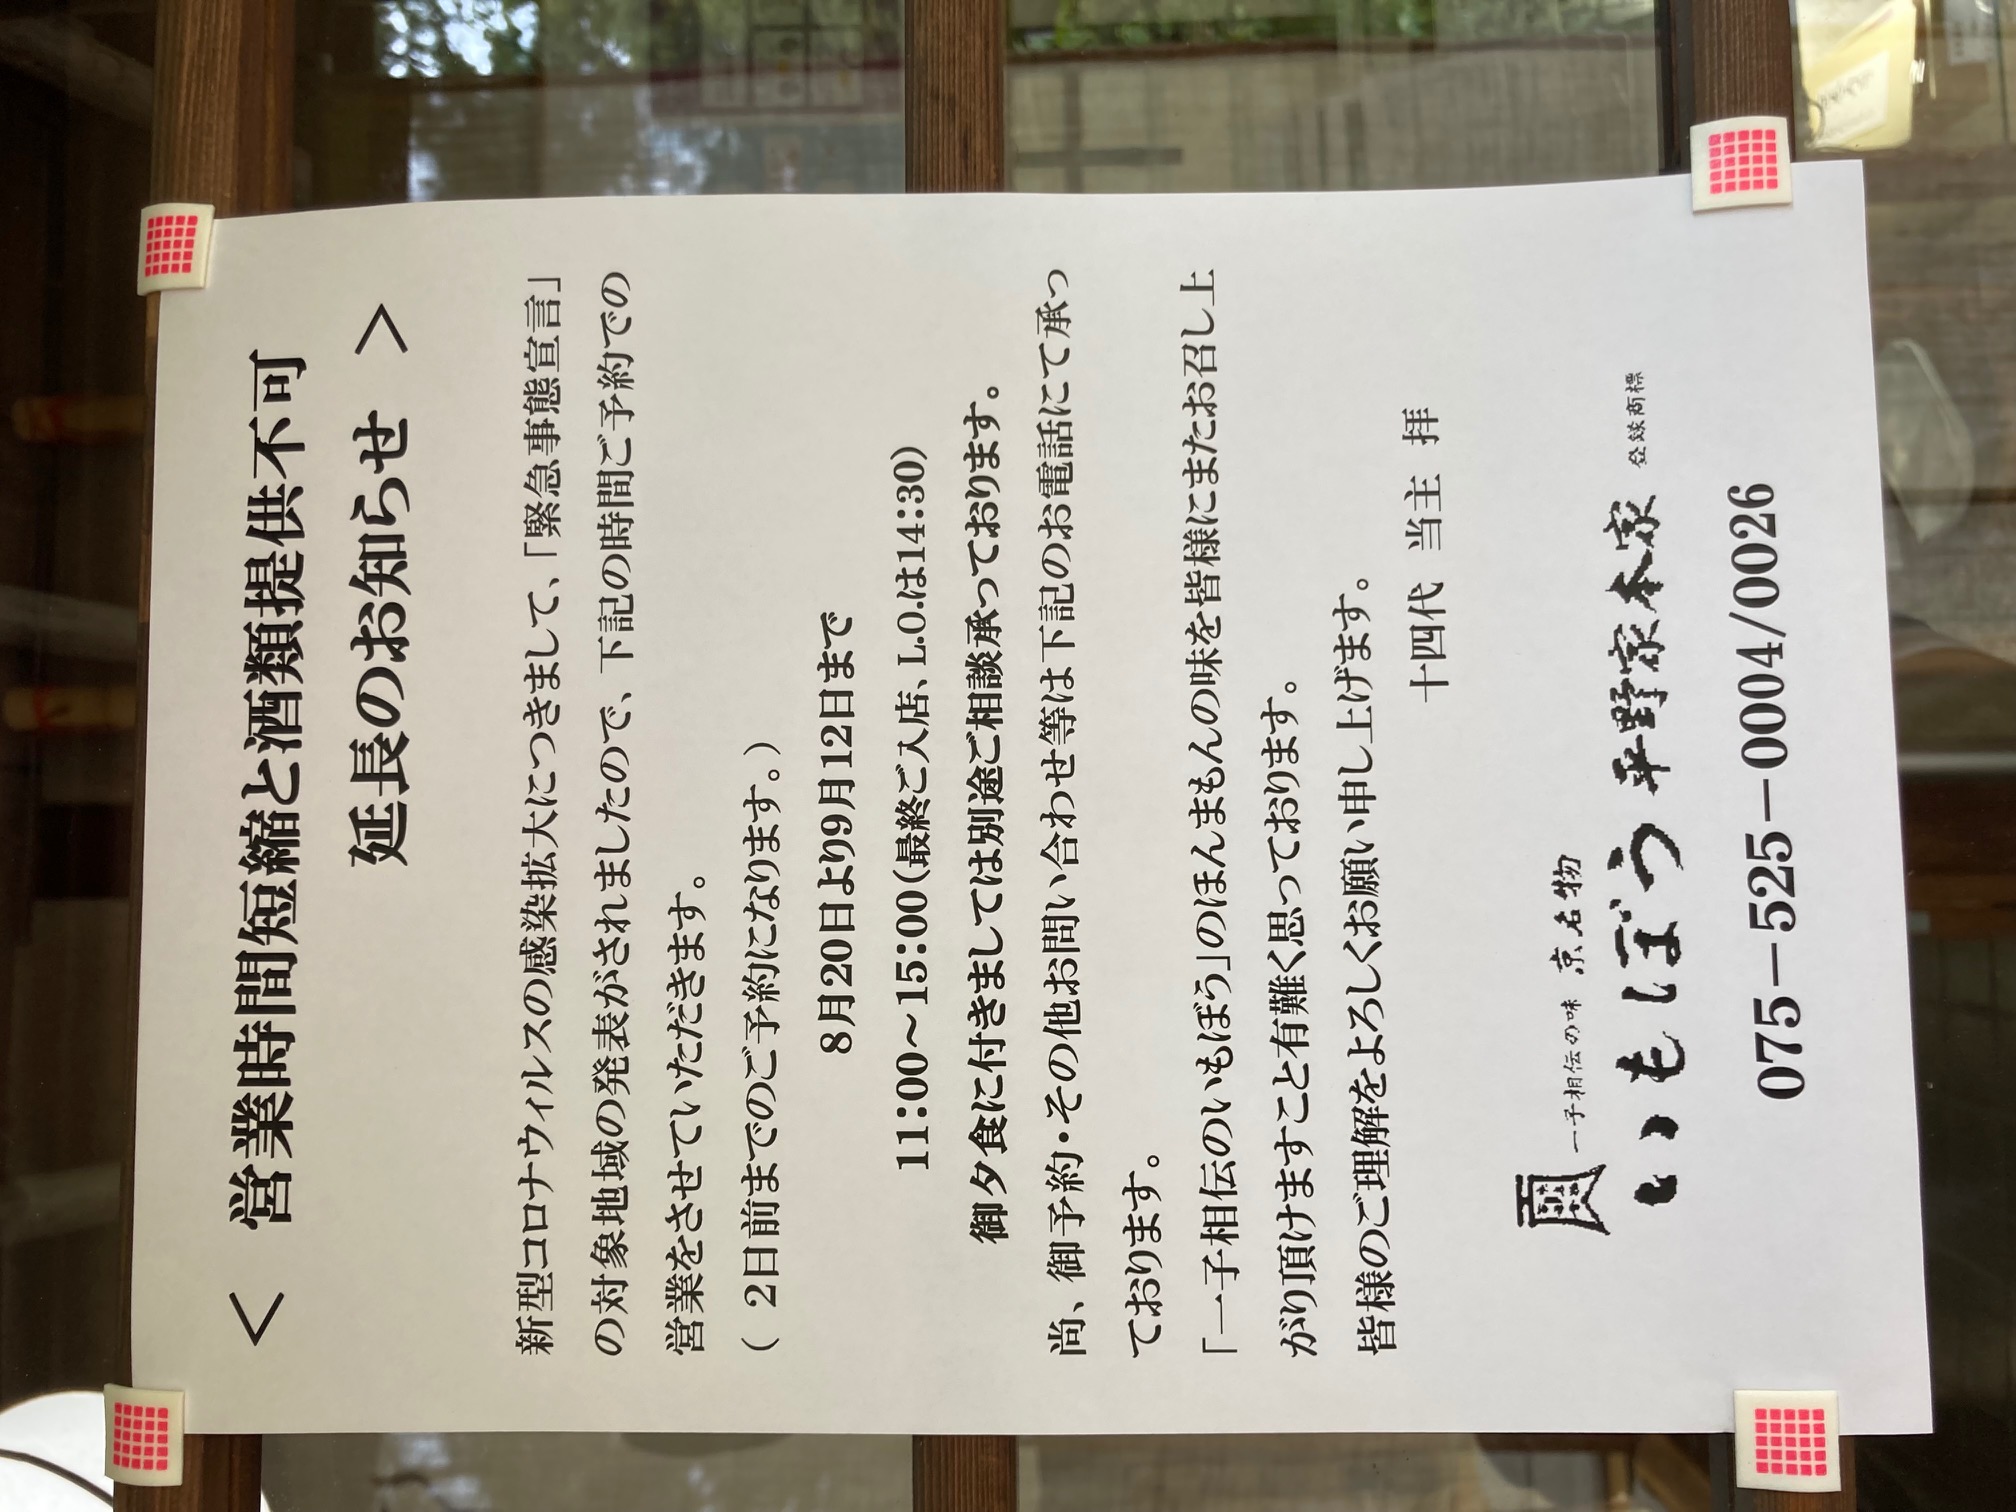 ＜ 営業時間短縮と酒類提供不可
延長のお知らせ ＞
新型コロナウィルスの感染拡大につきまして、「緊急事態宣言」
の対象地域の発表がされましたので、下記の時間ご予約での
営業をさせていただきます。
( 2日前までのご予約になります。)
8月20日より9月12日まで
11:00～15:00(最終ご入店、L.O.は14:30)
御夕食に付きましては別途ご相談承っております。
尚、御予約・その他お問い合わせ等は下記のお電話にて承っ
ております。
「一子相伝のいもぼう」のほんまもんの味を皆様にまたお召し上
がり頂けますこと有難く思っております。
皆様のご理解をよろしくお願い申し上げます。
十四代 当主 拝
一子相伝の味 京名物
いもぼう 平野家本家 登録商標
075-525-0004/0026